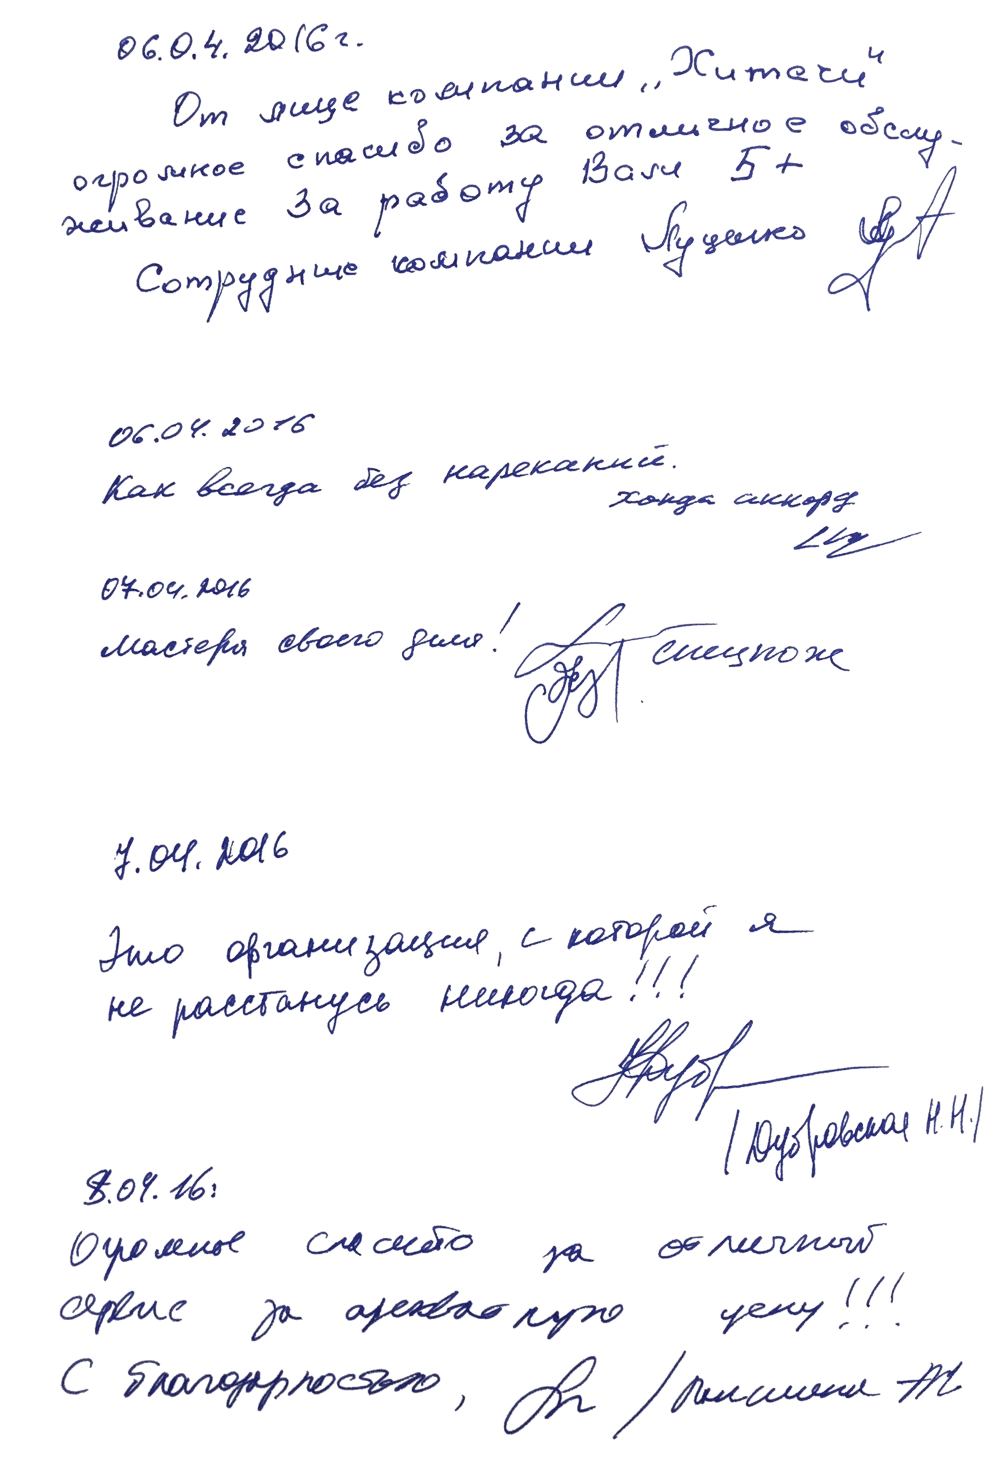 06.0.4. 2016 г.
От лице компании „Хитачи"
огромное спасибо за отличное обслу-
живание За работу Вам 5+
Сотрудние компании Луценко
06.04.2016
Как всегда без нареканий.
хонда аккорд
07.04.2016
Мастера своего дела!
7.04.2016
Это организация, с которой я
не расстанусь никогда!!!
/Дубровская Н.Н./
8.04.16:
Огромное спасибо за отличный
сервис за адекватную цену!!!
С благодарностью,